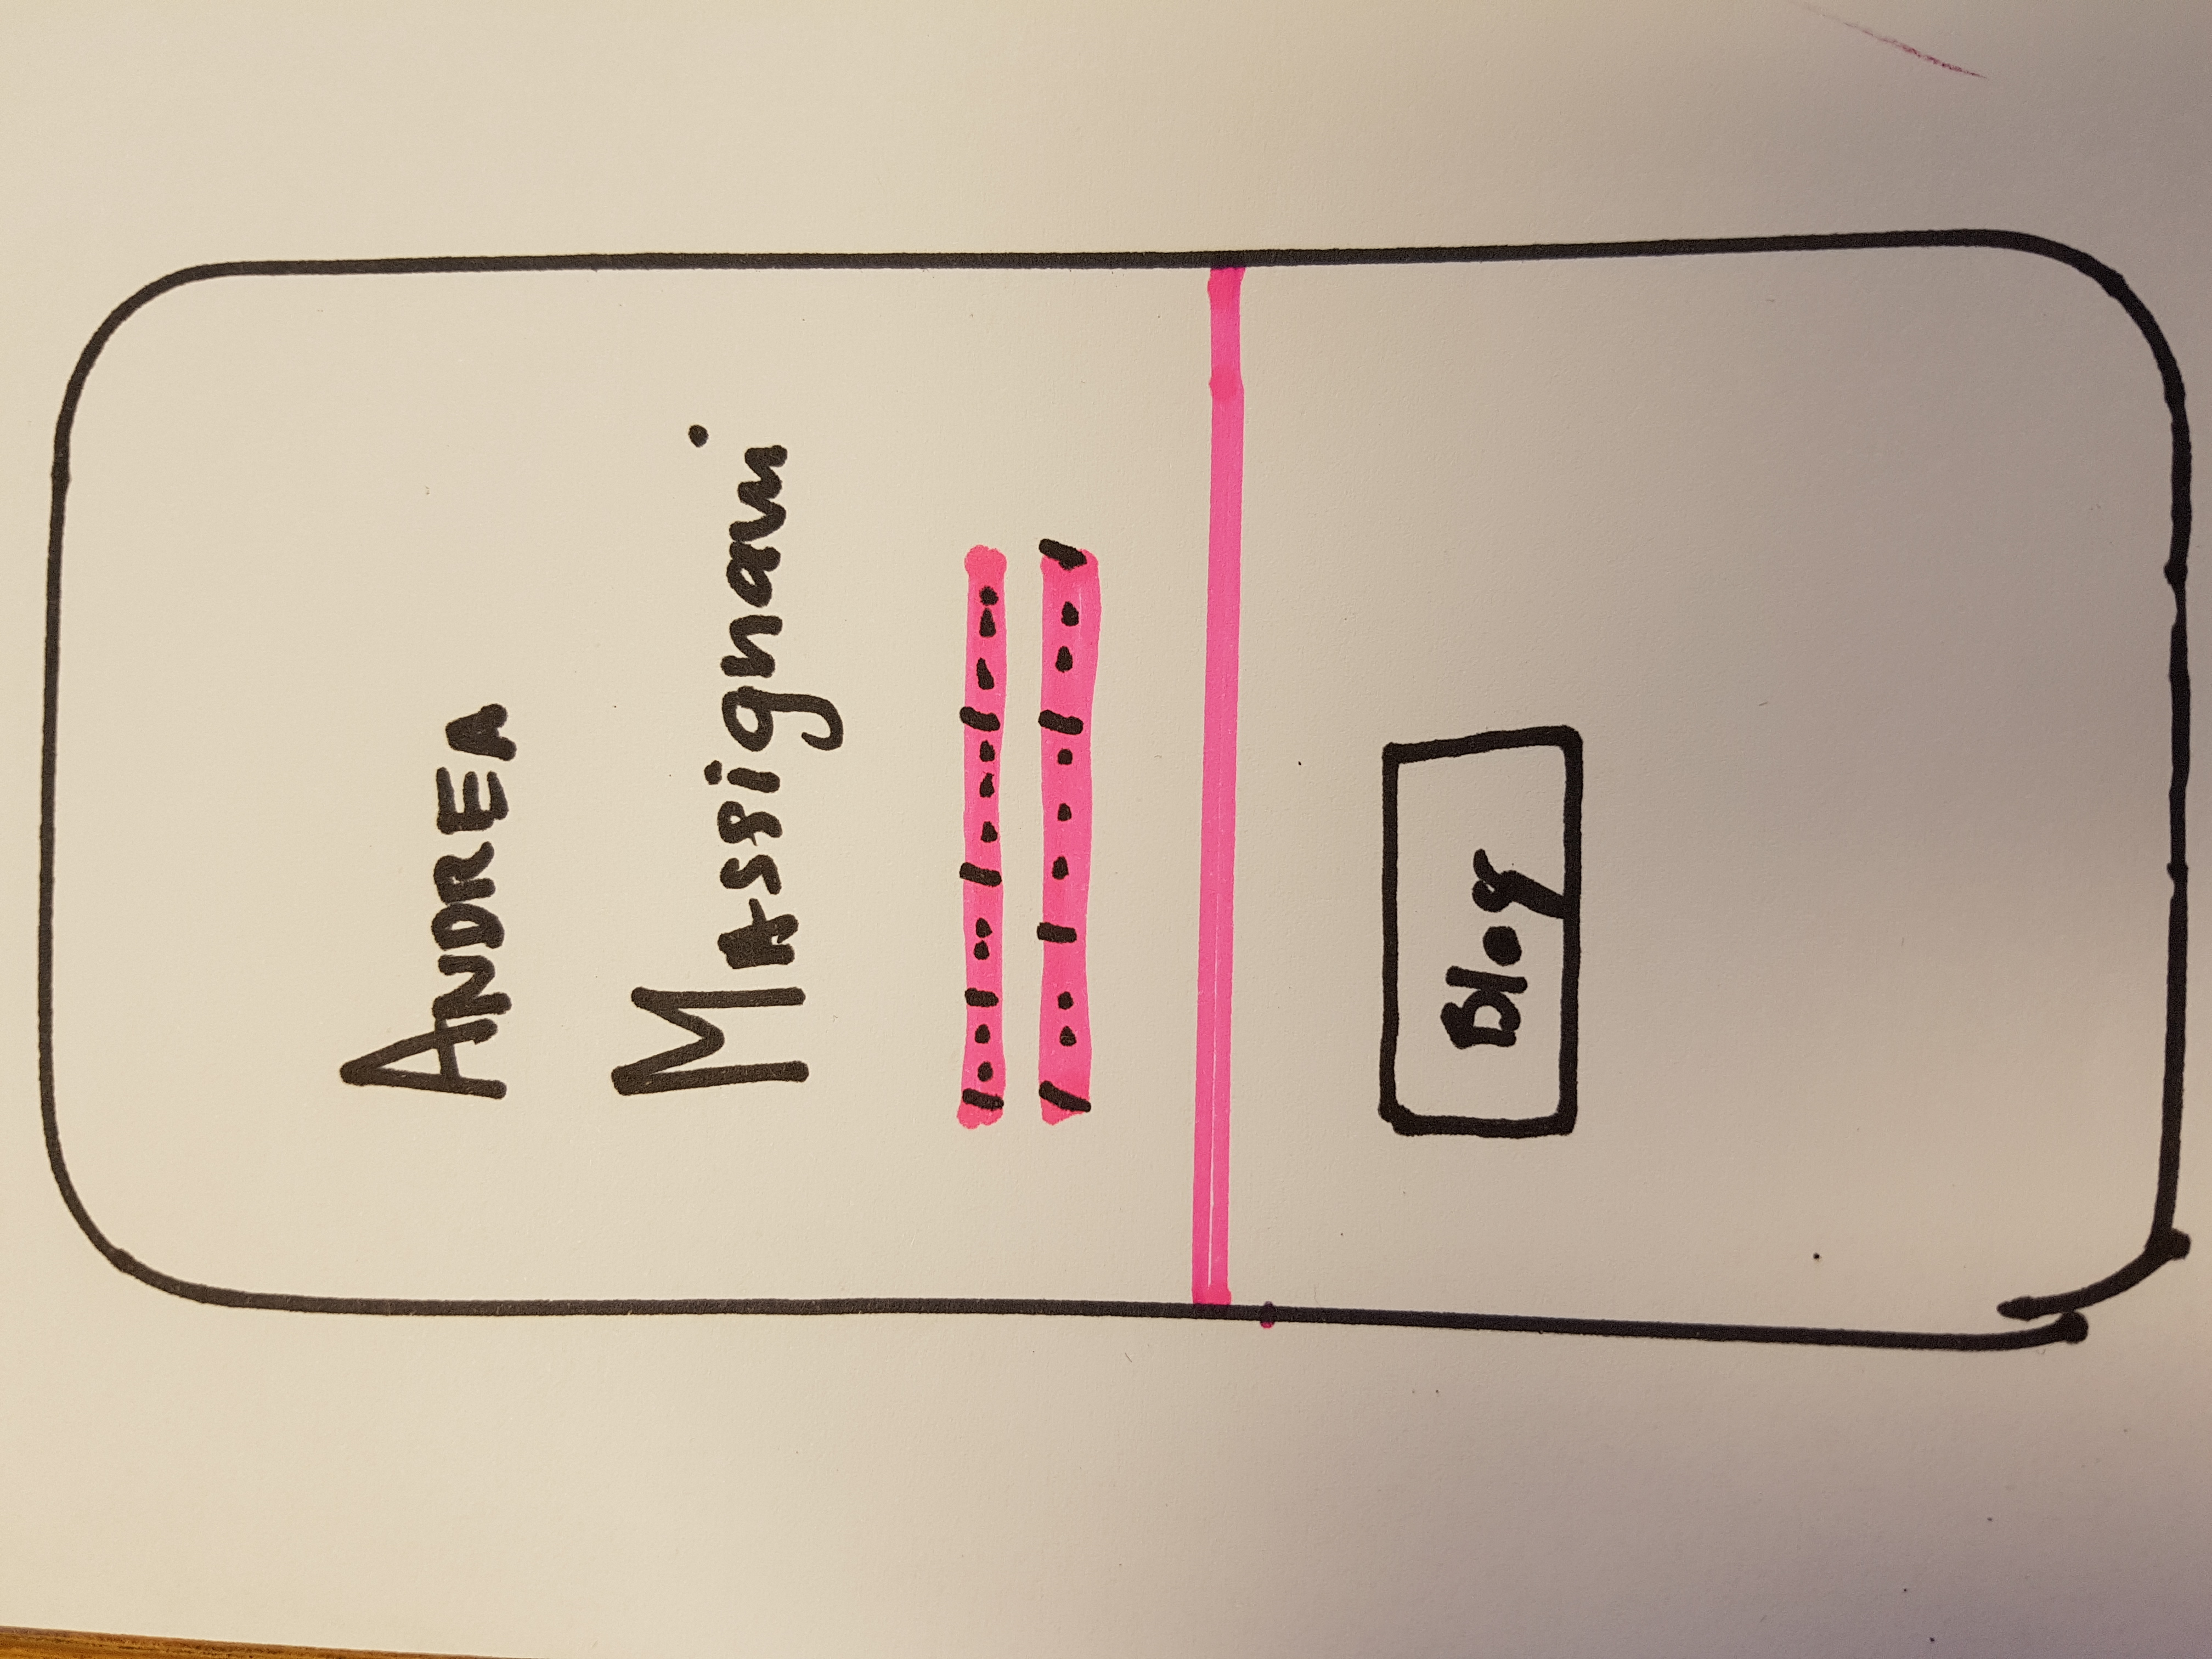 ANDREA
MAssignani
Blog